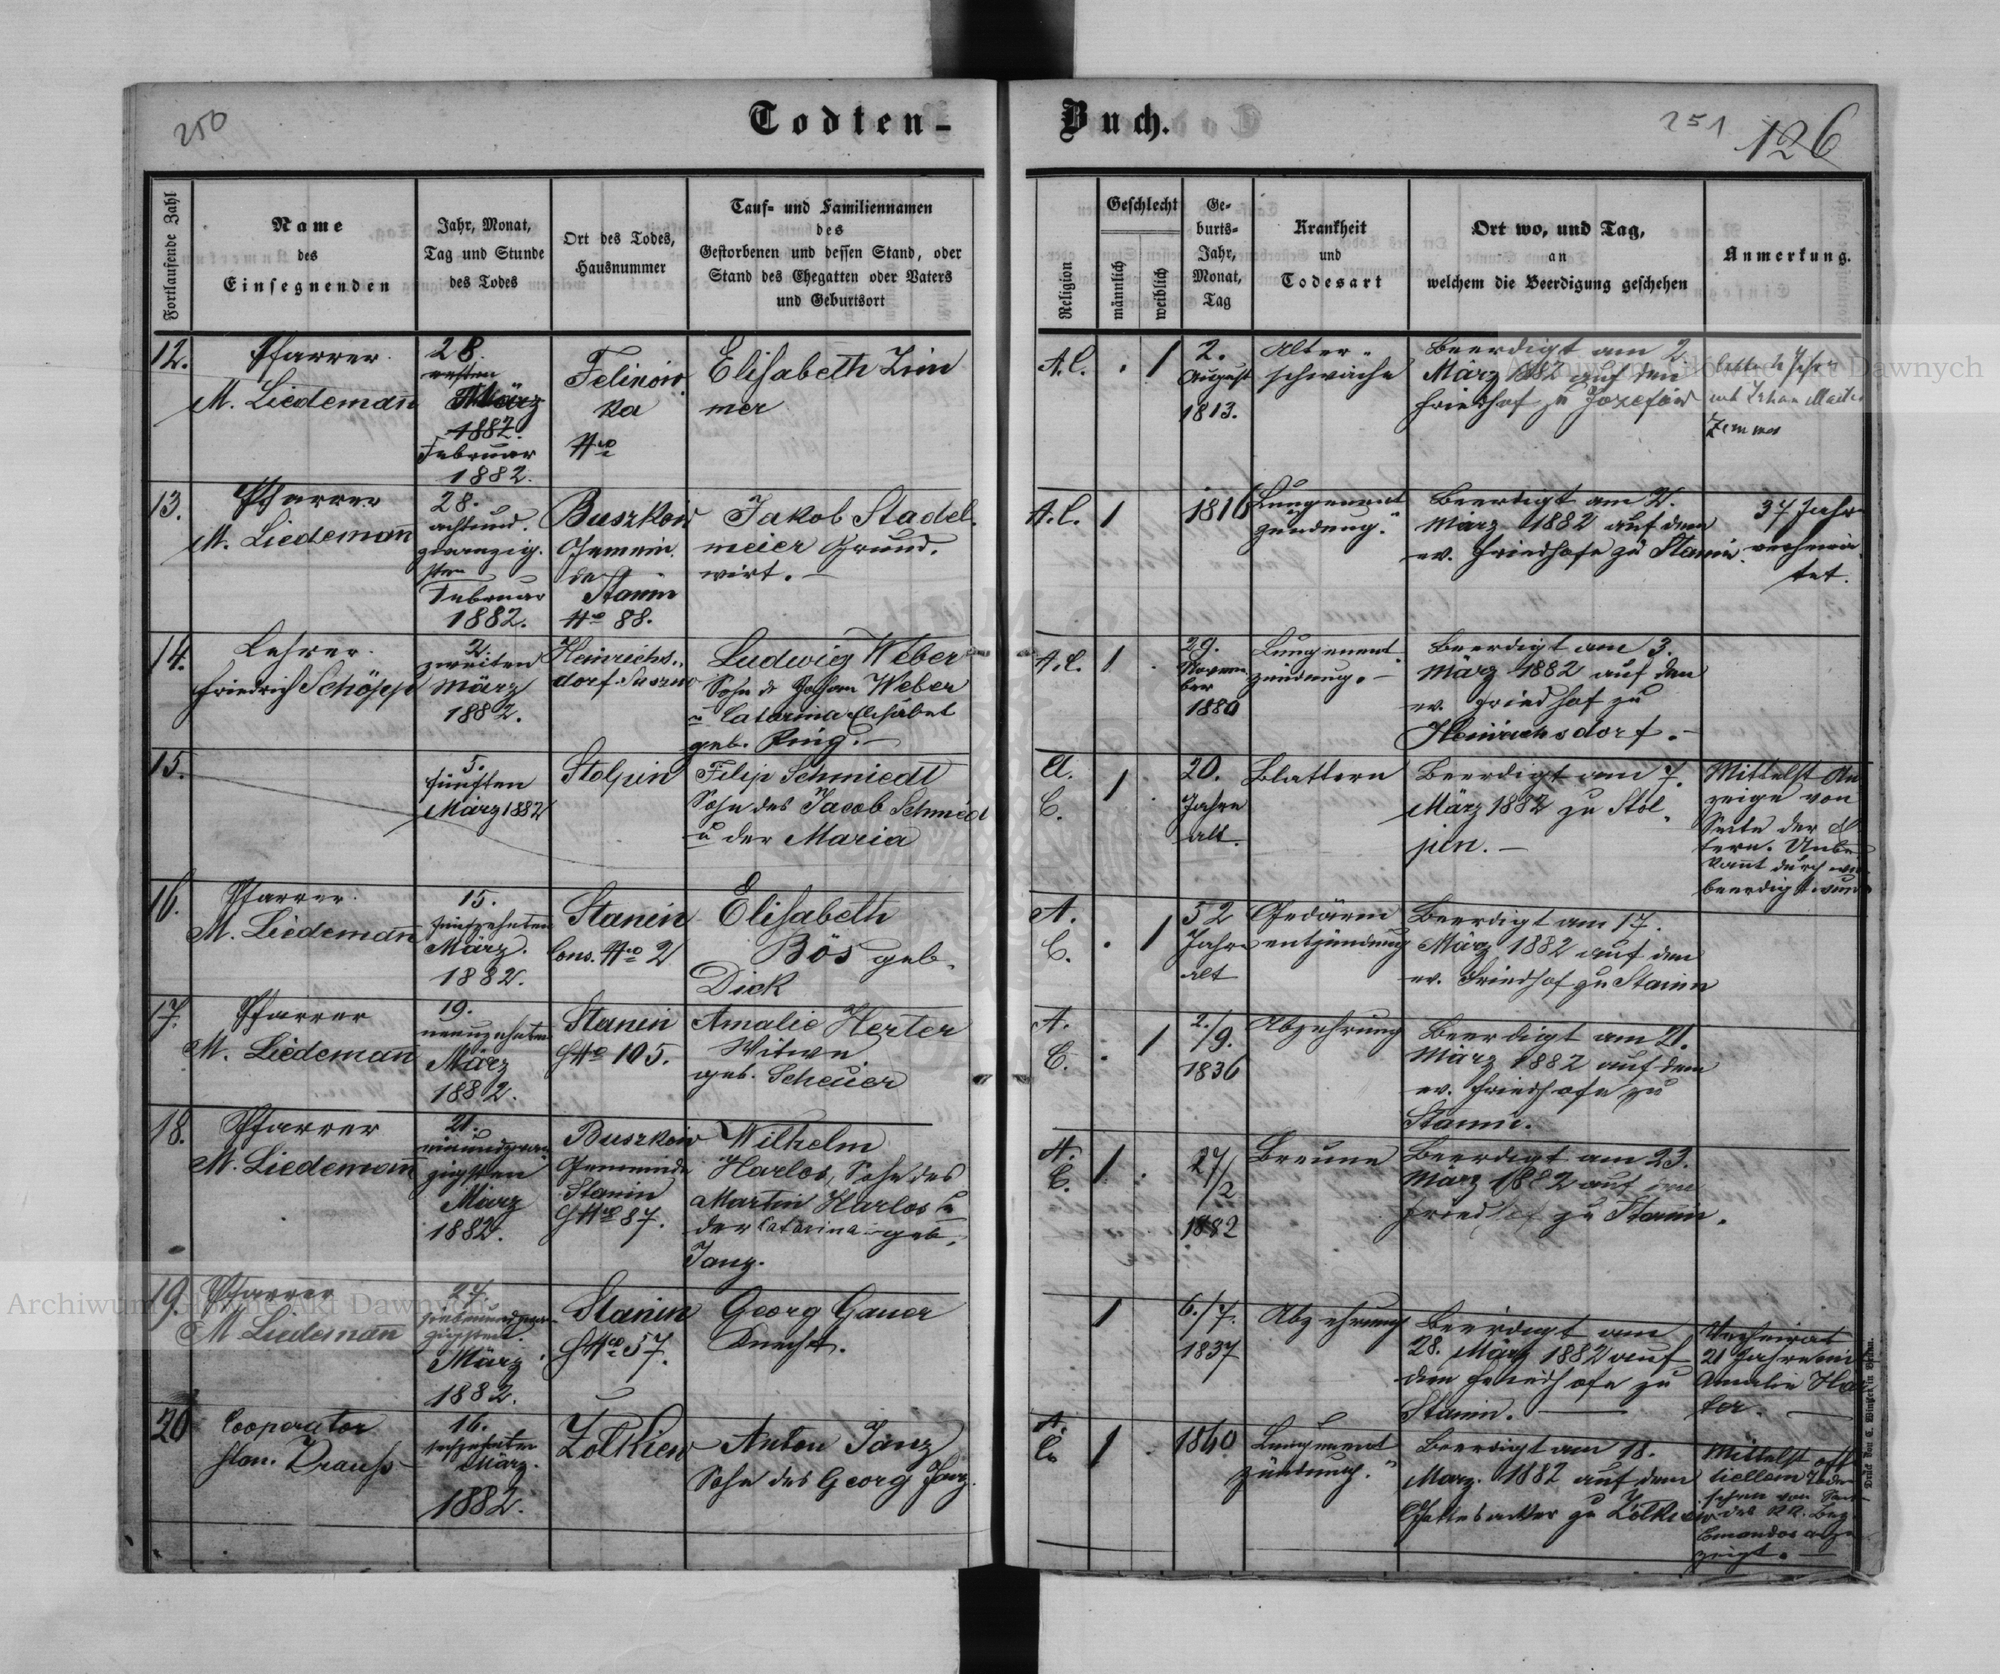 250
Todten-
Buch.
251
126
Fortlaufende Zahl
Name
des
Einsegnenden
Jahr, Monat,
Tag und Stunde
des Todes
Ort des Todes,
Hausnummer
Tauf- und Familiennamen
des
Gestorbenen und dessen Stand, oder
Stand des Ehegatten oder Vaters
und Geburtsort
Religion
Geschlecht
männlich
weiblich
Ge-
burts-
Jahr,
Monat,
Tag
Krankheit
und
Todesart
Ort wo, und Tag,
an
welchem die Beerdigung geschehen
Anmerkung.
12.
Pfarrer
M. Liedemañ
28.
ersten
März
1882.
Februar
1882.
Felinow
ka
Nro
Elisabeth Zim
mer
A. C.
1
2.
August
1813.
Alter-
schwäche
Beerdigt am 2.
März 1882 auf den
Friedhof zu Jozefow
Zimmer
13.
Pfarrer
M. Liedemañ
28.
achtund.
zwanzig.
sten
Februar
1882.
Buszkow
Gemein.
de
Stanin
Nro 88.
Jakob Stadel.
meier Grund.
wirt.
A. C.
1
1816
Lungenent
zündung.
Beerdigt am 2.
März 1882 auf dem
ev. Friedhofe zu Stanin.
37 Jahr
verheira
tet.
14.
Lehrer
Friedrich Schöpp
2.
zweiten
März
1882.
Heinrichs.
dorf
Ludwig Weber
Sohn d. Johann Weber
u Catarina Elisabet
geb. Ring.
A. C.
1
29.
Novem
ber
1880
Lungenent
zündung.
Beerdigt am 3.
März 1882 auf den
ev. Friedhof zu
Heinrichsdorf.
15.
5.
fünften
März 1882
Stolpin
Filip Schmiedt
Sohn des Jacob Schmied
u der Maria
A.
C.
1
20.
Jahre
alt.
Blattern
Beerdigt am 7.
März 1882 zu Stol
pin.
Mittelst An
zeige von
Seite der El
tern. Unbe
kant durch wen
beerdigt wurde
16.
Pfarrer
M. Liedemañ
15.
fünfzehnten
März.
1882.
Stanin
Cons. Nro 2
Elisabeth
Bös geb.
Dick
A.
C.
1
52
Jahre
alt
Gedärm
entzündung
Beerdigt am 17.
März 1882 auf dem
ev. Friedhof zu Stanin
17.
Pfarrer
M. Liedemañ
19.
neunzehnten
März
1882.
Stanin
HNro 105.
Amalie Herter
Witwe
geb. Scheuer
A.
C.
1
2./9.
1836
Abzehrung
Beerdigt am 21.
März 1882 auf dem
ev. Friedhofe zu
Stanin.
18.
Pfarrer
M. Liedemañ
21.
einundzwan
zigsten
März
1882.
Buszkow
Gemeinde
Stanin
HNro 87.
Wilhelm
Harlos, Sohn des
Martin Harlos u
der Catarina geb.
Janz.
A.
C.
1
27/2
1882
Breune
Beerdigt am 23.
März 1882 auf den
Friedhof zu Stanin.
19.
Pfarrer
M Liedemañ
27.
siebenundzwan
zigsten.
März
1882.
Stanin
HNro 57.
Georg Gauer
Knecht.
1
6./7.
1837
Abzehrung
Beerdigt am
28. März 1882 auf
dem Friedhofe zu
Stanin.
Verheirat
21 Jahre mit
Amalie Har
ter.
20
Cooperator
16.
sechzehnten
März.
1882.
Żolkiew
Anton Janz
Sohn des Georg Janz.
A.
C.
1
1860
Lungenent
zündung.
Beerdigt am 18.
März. 1882 auf dem
Gottesacker zu Żolkiew
Mittelst offi
ciellem
des KK. Bez.
Comandos ange
zeigt.
Druck von C. Winiker in Brünn.
Archiwum Główne Akt Dawnych
Archiwum Główne Akt Dawnych